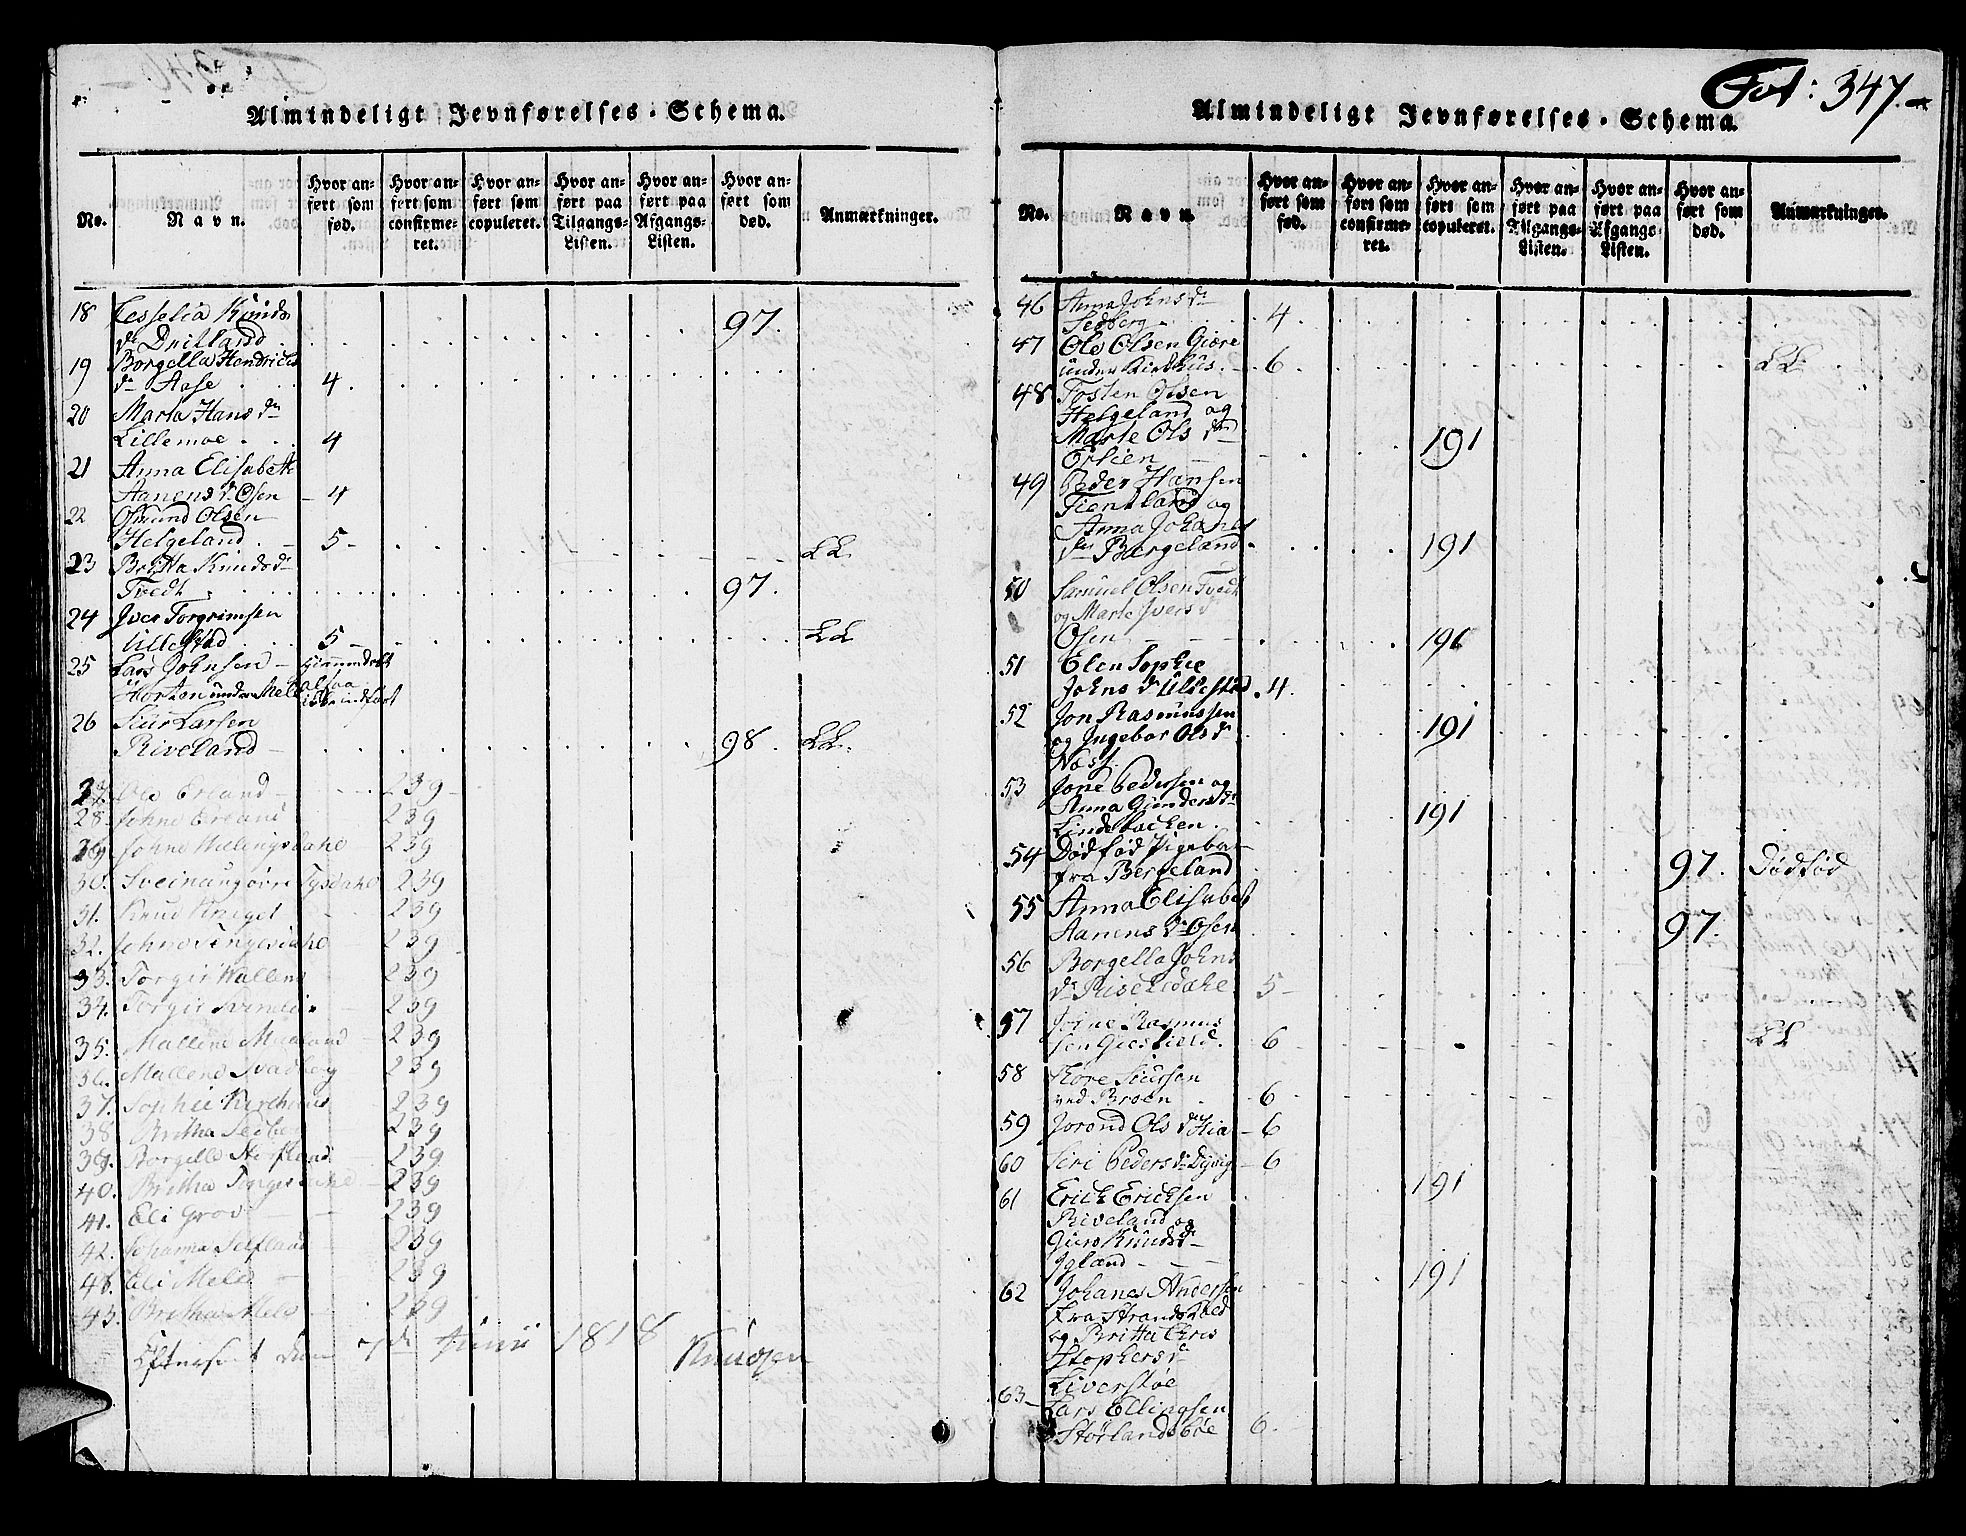 Almindeligt Jevnførelses-Schema.
No.
Navn.
Hvor anført som fød.
Hvor anført som confirmeret.
Hvor anført som copuleret.
Hvor anført paa Tilgangs-Listen.
Hvor anført paa Afgangs-Listen.
Hvor anført som død.
Anmærkninger.
18 Cesselia Knuds
dr Dritland 97.
19 Borgella Hendrichs
dr Aase 4.
20 Marta Hans dr
Lillemoe 4
21 Anna Elisabeth
Aanens dr Osen 4
22 Osmund Olsen
Helgeland 5 LL
23 Britta Knuds dr
Tvedt 97.
24 Iver Torgrimsen
Ullestad 5 LL
25 Lars Johnsen
Horton under Mele
26 Siur Larsen
Riveland 98. LL.
27. Ole Eriand 239
28. Johne Eriand 239
29. Johne Hallingsdahl 239
30. Sveinung øvre Tysdahl 239
31. Knud 239
32. Johne Tengesdahl 239
33. Torgir Hallens 239
34. Torgir 239
35. Mallene 239
36. Mallene Svadberg 239
37. Sophie Kirchhus 239
38 Britha 239
39. Borgella 239
40. Britha Tengesdahl 239
41. Eli Grov 239
42. Johanna 239
43. Eli Mele 239
45. Britha Mele 239
Efterseet den 7de Junii 1818 Knudsen
Fol: 347.
Almindeligt Jevnførelses-Schema.
No.
Navn.
Hvor anført som fød.
Hvor anført som confirmeret.
Hvor anført som copuleret.
Hvor anført paa Tilgangs-Listen.
Hvor anført paa Afgangs-Listen.
Hvor anført som død.
Anmærkninger.
46 Anna Johns dr
Sedberg 4.
47 Ole Olsen Giøre
under Kirkhus 6 LL
48 Tosten Olsen
Helgeland og
Marte Ols dr
Ørlien 191
49 Peder Hansen
Fientland og
Anna Johanes
dr Bergeland 191
50 Samuel Olsen Tvedt
og Marte Ivers dr
Osen 191
51 Elen Sophie
Johns dr Ullestad 4.
52 Jon Rasmussen
og Ingebor Ols dr
Næss 191
53 Jone Pedersen og
Anna Gunders dr
Lindebrecken 191
54 Dødfød Pigebarn
fra Bergeland 97. Dødfød
55 Anna Elisabet
Aanens dr Osen 97.
56 Borgella Johns
dr 5
57 Rasmus
sen 6 LL
58 Tore Siursen
ved Broen 6
59 Jorond Ols dr Hia 6
60 Siri Peders dr Dyvig 6
61 Erich Erichsen 191
Riveland og
Guro Knuds dr
Igland
62 Johanes Andersen 191
fra Strand Sted
og Britta Chris
stophers dr
63 Lars Ellingsen
Størlandsbøe 6.